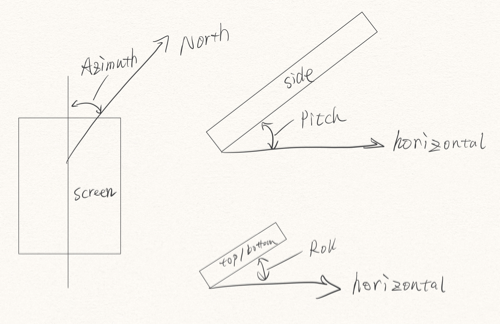 Azimuth
North
screen
side
Pitch
horizontal
top/bottom
Roll
horizontal